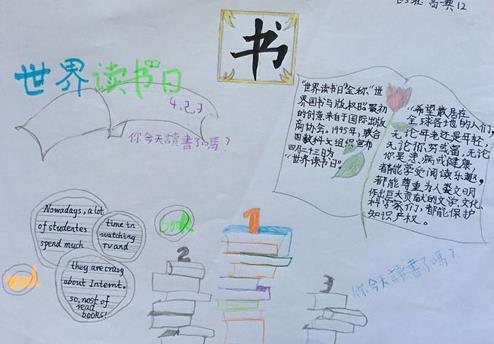 书
世界读书日
4.23
你今天讀書了嗎？
"世界读书日"全称"世
界图书与版权日"最初
的创意来自于国际出版
商协会。1995年，联合
国教科文组织宣布
四月二十三日为
"世界读书日"
"希望散居在
全球各地的人们，
无论年老还是年轻，
无论你穷或富，无论
你患病或健康，
都能享受阅读乐趣，
都能尊重为人类文明
作出巨大贡献的文学文化，
科学家们，都能保护
知识产权。
Nowadays, a lot
of studentes
spend much
time in
watching
TV and
they are crazg
about Internt.
so, nost of
read
books!
1
2
3
你今天讀書了嗎？